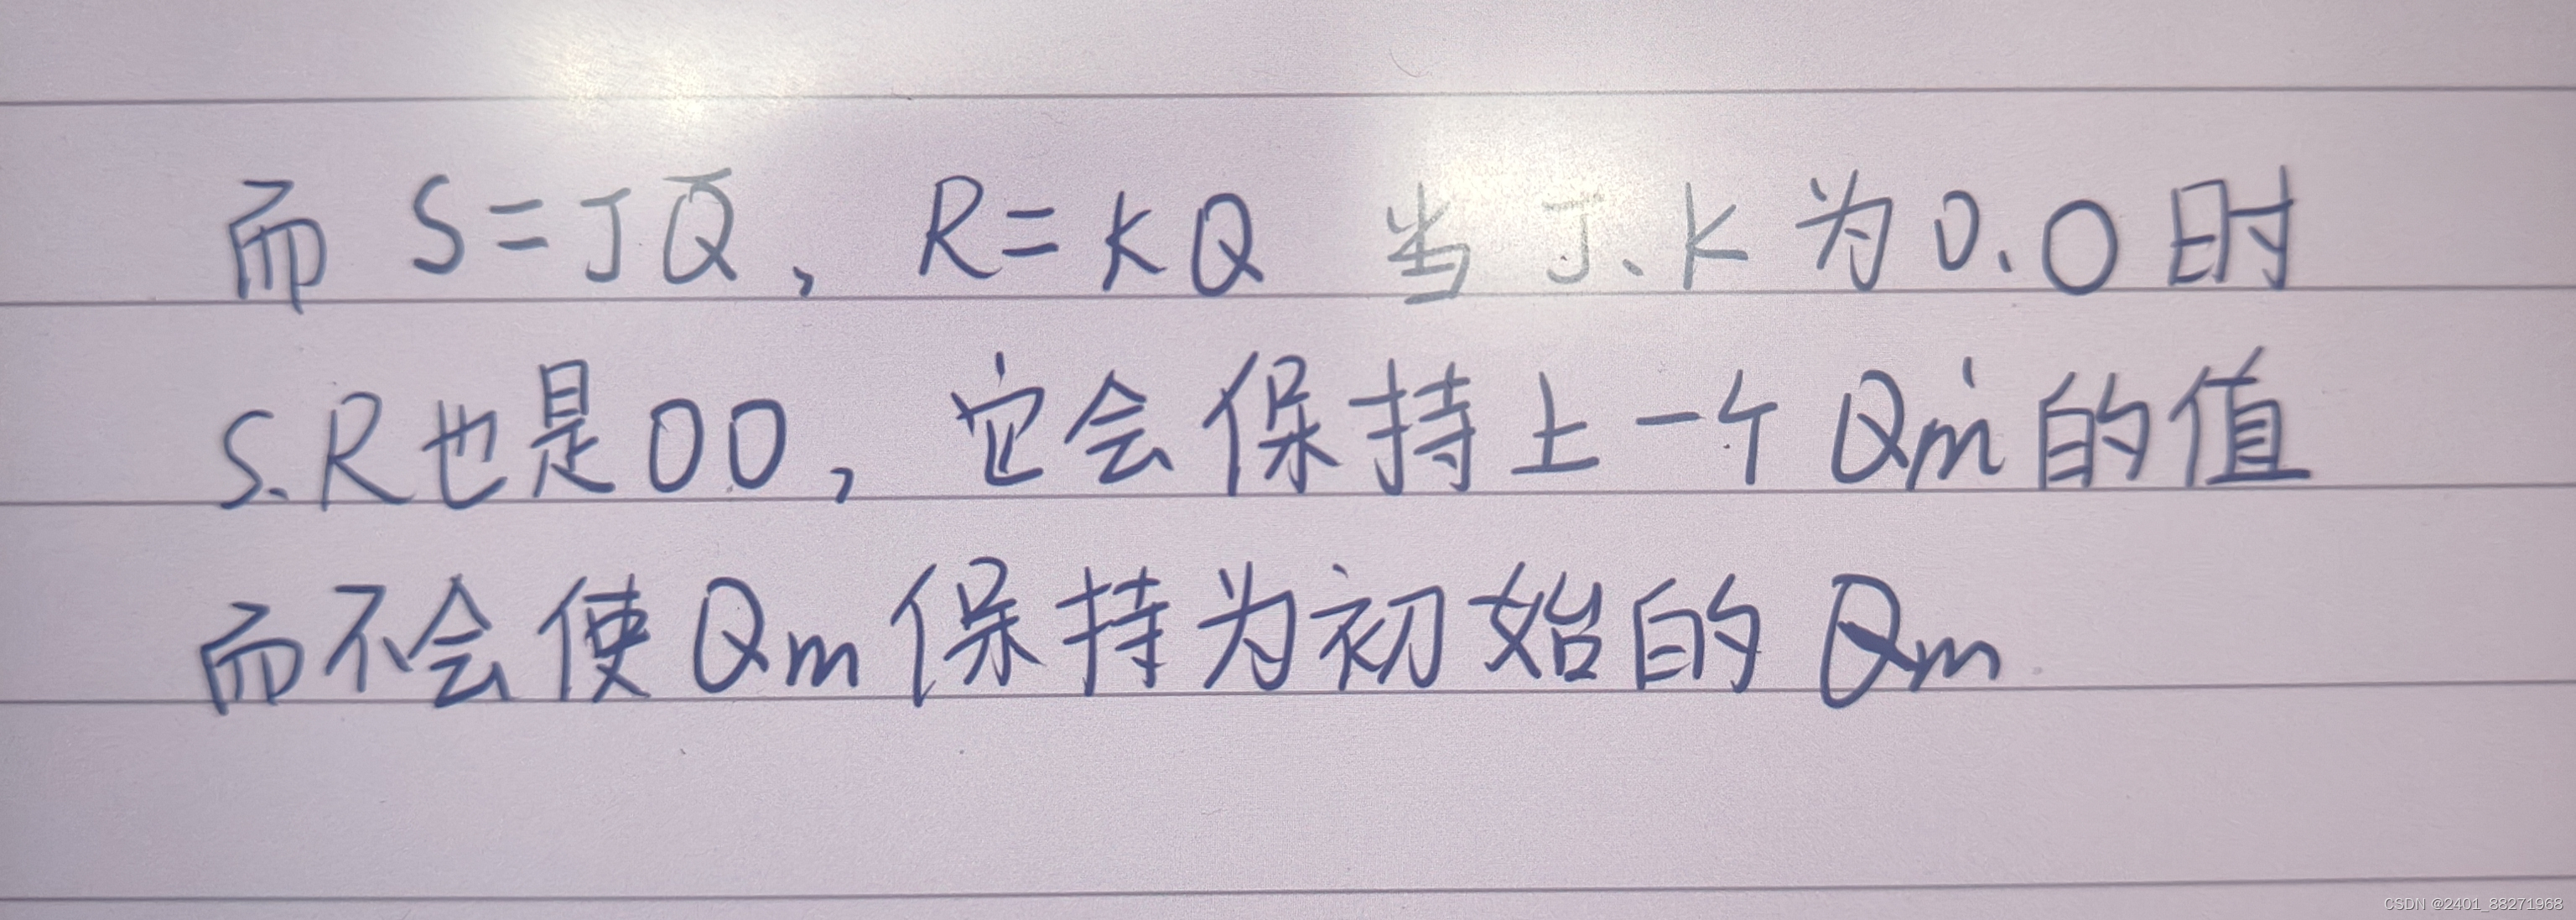 而 S=JQ̅, R=KQ 当 J.K 为0.0时
S.R也是00, 它会保持上一个Qm的值
而不会使Qm保持为初始的Qm
CSDN @2401_88271968